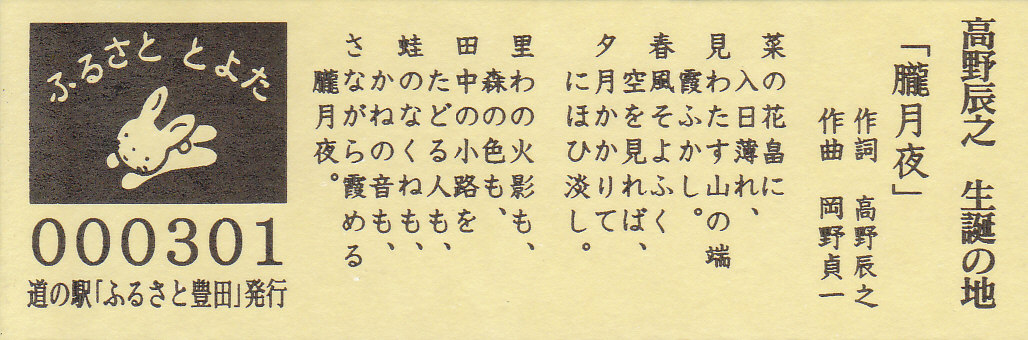 高野辰之　生誕の地
「朧月夜」
作詞　高野辰之
作曲　岡野貞一
菜の花畠に
入日薄れ、
見わたす山の端
霞ふかし。
春風そよふく
空を見れば、
夕月かかりて
にほひ淡し。
里わの火影も、
森の色も、
田中の小路を
たどる人も、
蛙のなくねも、
かねの音も、
さながら霞める
朧月夜。
ふるさと とよた
000301
道の駅「ふるさと豊田」発行